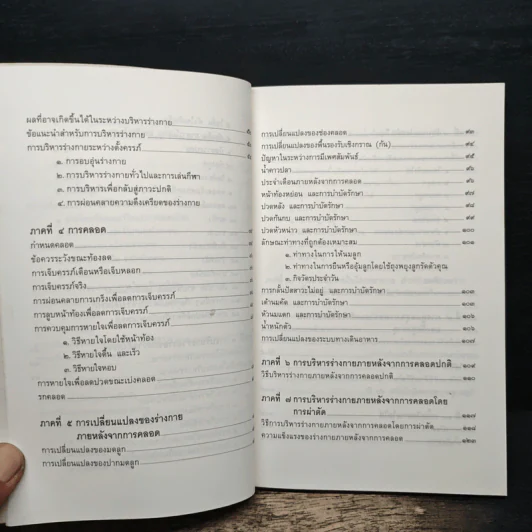 ผลที่อาจเกิดขึ้นได้ในระหว่างบริหารร่างกาย
ข้อแนะนำสำหรับการบริหารร่างกาย
การบริหารร่างกายระหว่างตั้งครรภ์
๑. การอบอุ่นร่างกาย
๒. การบริหารร่างกายทั่วไปและการเล่นกีฬา
๓. การบริหารเพื่อกลับสู่ภาวะปกติ
๔. การผ่อนคลายความตึงเครียดของร่างกาย
ภาคที่ ๔ การคลอด
กำหนดคลอด
ข้อควรระวังขณะท้องลด
การเจ็บครรภ์เตือนหรือเจ็บหลอก
การเจ็บครรภ์จริง
การผ่อนคลายการเกร็งเพื่อลดการเจ็บครรภ์
การลูบหน้าท้องเพื่อลดการเจ็บครรภ์
การควบคุมการหายใจเพื่อลดการเจ็บครรภ์
๑. วิธีหายใจโดยใช้หน้าท้อง
๒. วิธีหายใจตื้น และเร็ว
๓. วิธีหายใจหอบ
การหายใจเพื่อลดปวดขณะเบ่งคลอด
รกคลอด
ภาคที่ ๕ การเปลี่ยนแปลงของร่างกาย
ภายหลังจากการคลอด
การเปลี่ยนแปลงของมดลูก
การเปลี่ยนแปลงของปากมดลูก
การเปลี่ยนแปลงของช่องคลอด
การเปลี่ยนแปลงของพื้นรองรับเชิงกราน (ก้น) ๙๔
ปัญหาในระหว่างการมีเพศสัมพันธ์
น้ำคาวปลา
ประจำเดือนภายหลังจากการคลอด
หน้าท้องหย่อน และการบำบัดรักษา
ปวดหลัง และการบำบัดรักษา
ปวดก้นกบ และการบำบัดรักษา ๙๙
ปวดหัวหน่าว และการบำบัดรักษา ๑๐๐
ลักษณะท่าทางที่ถูกต้องเหมาะสม ๑๐๑
๑. ท่าทางในการให้นมลูก
๒. ท่าทางในการยืนหรืออุ้มลูกโดยใช้ถุงพยุงลูกรัดตัวคุณ
๓. กิจวัตรประจำวัน
การกลั้นปัสสาวะไม่อยู่ และการบำบัดรักษา ๑๐๓
เต้านมคัด และการบำบัดรักษา ๑๐๕
หัวนมแตก และการบำบัดรักษา ๑๐๖
น้ำหนักตัว ๑๐๖
การเปลี่ยนแปลงของระบบทางเดินอาหาร ๑๐๗
ภาคที่ ๖ การบริหารร่างกายภายหลังจากการคลอดปกติ ๑๐๙
วิธีบริหารร่างกายภายหลังจากการคลอดปกติ ๑๑๐
ภาคที่ ๗ การบริหารร่างกายภายหลังจากการคลอดโดย
การผ่าตัด ๑๑๗
วิธีการบริหารร่างกายภายหลังจากการคลอดโดยการผ่าตัด ๑๑๘
ความแข็งแรงของร่างกายภายหลังจากการคลอด ๑๒๓